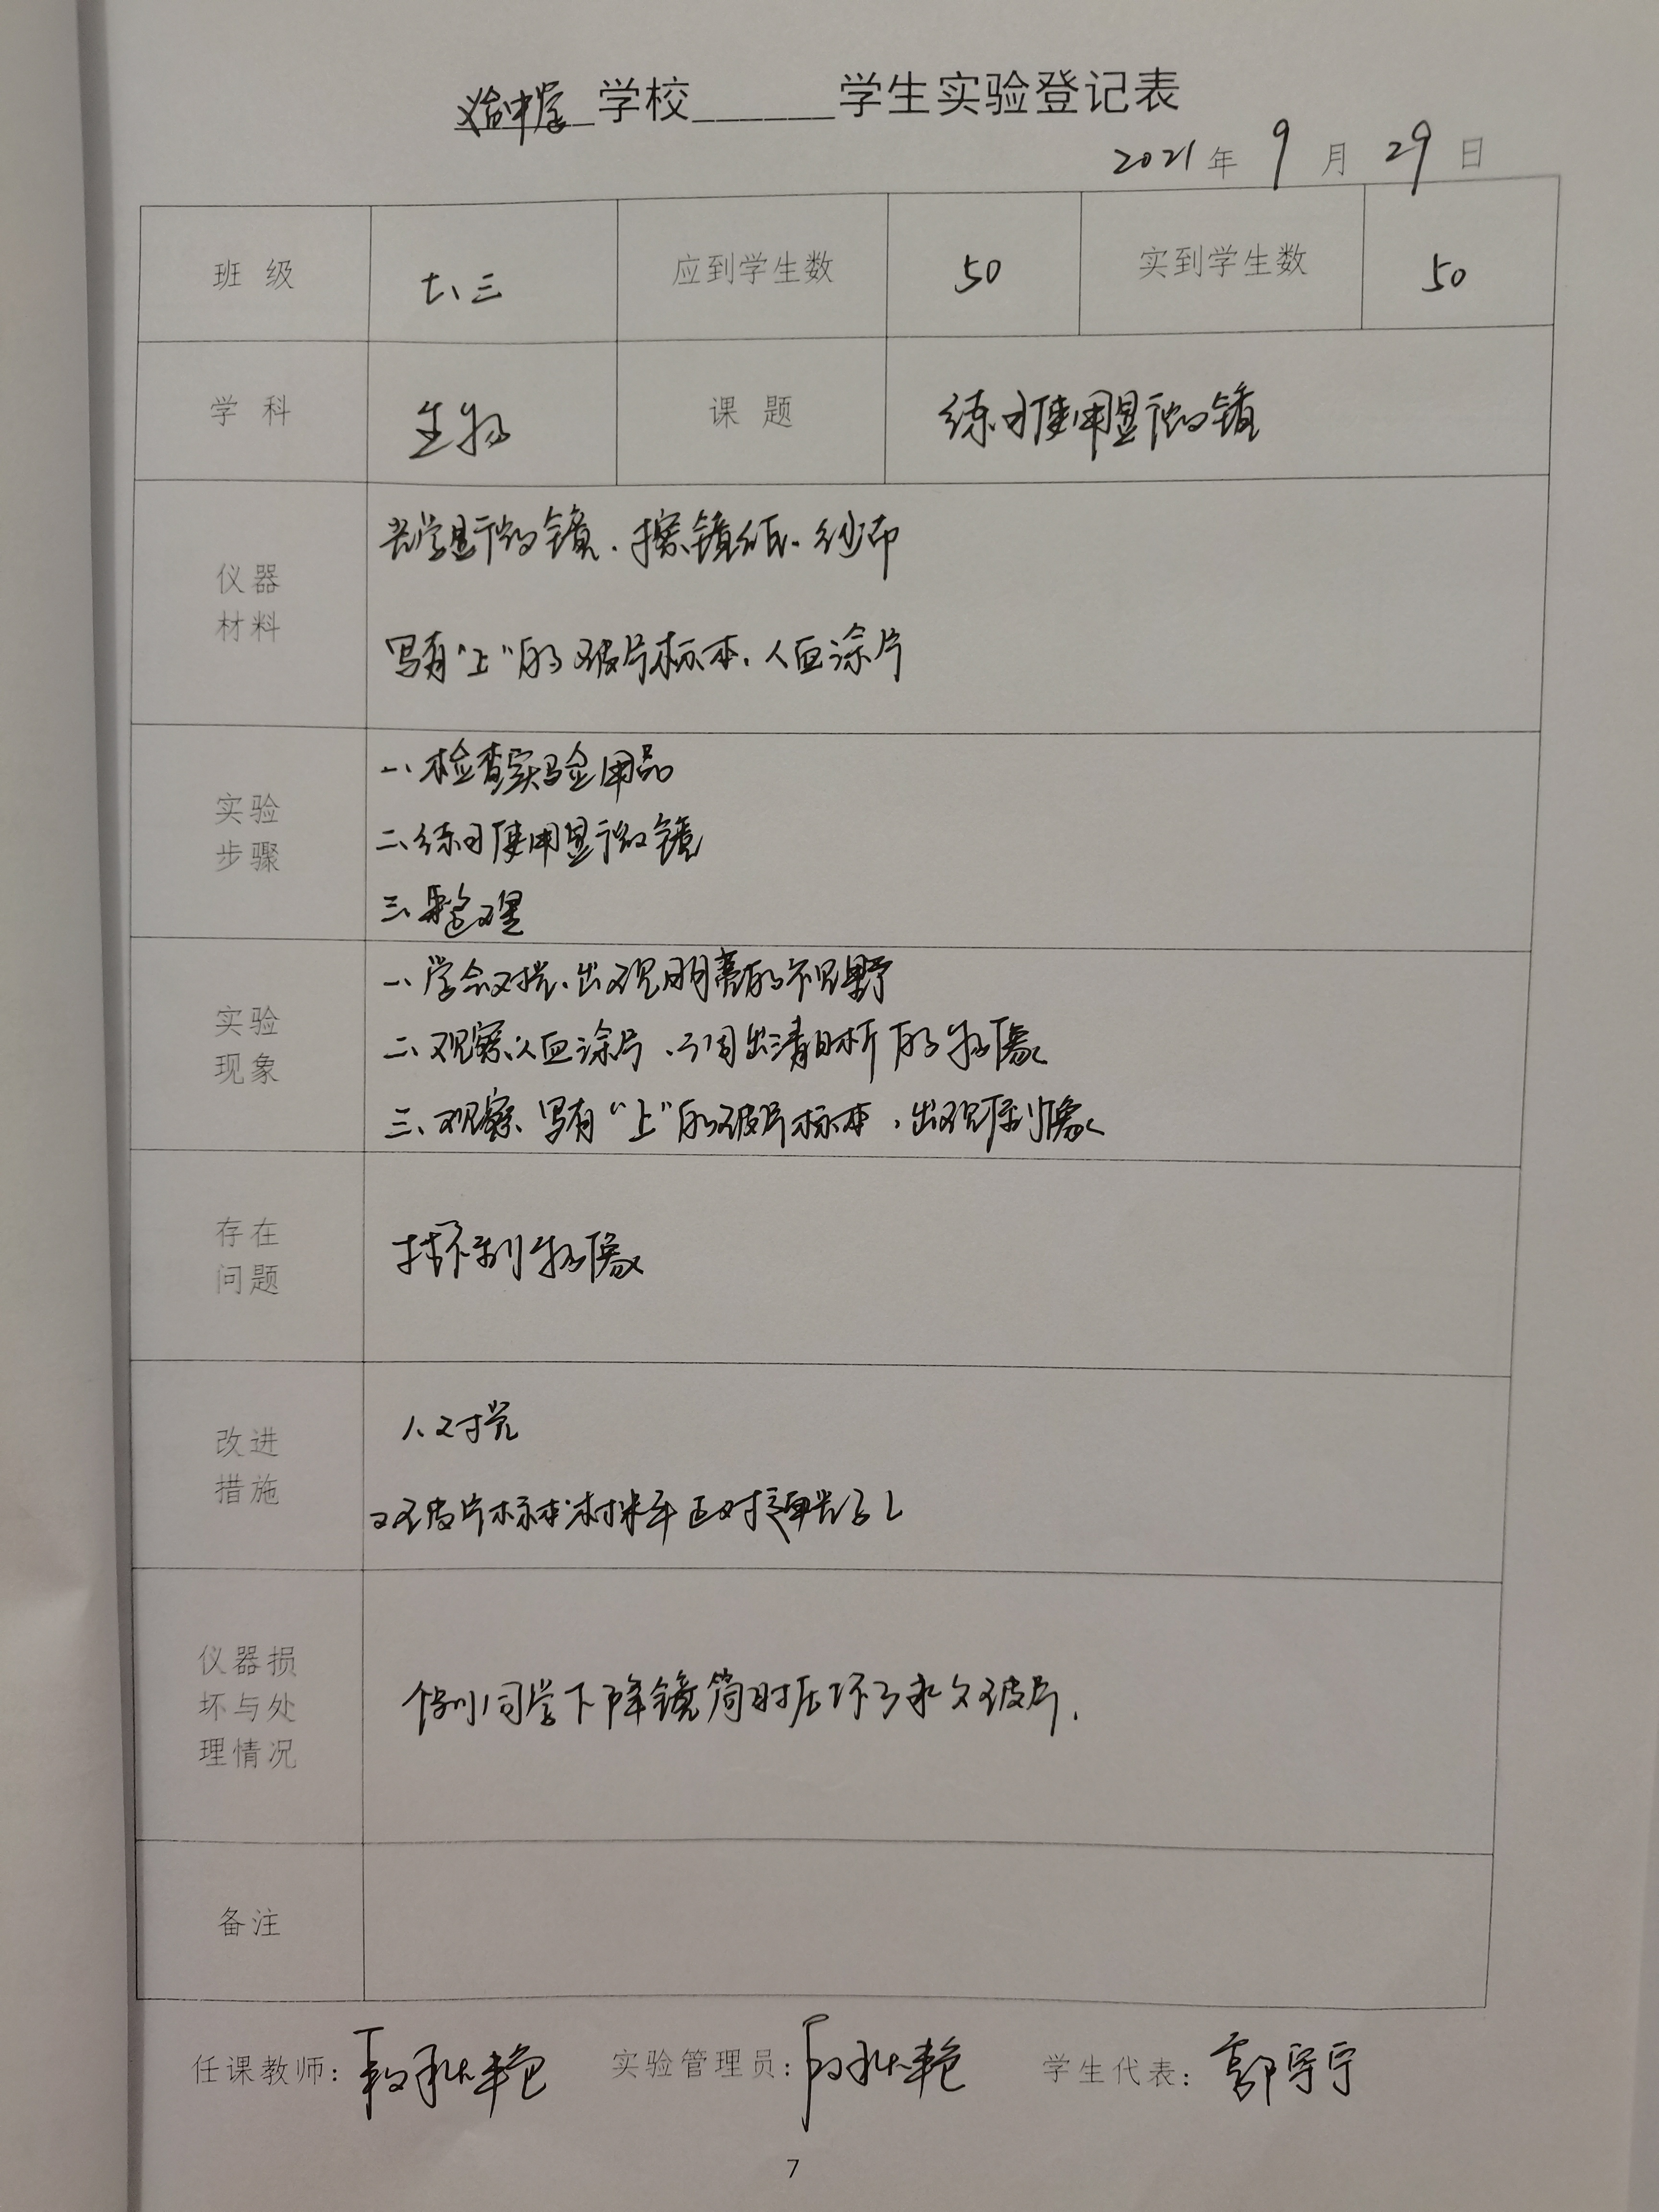 中学学校______学生实验登记表
2021年 9 月 29 日
班 级 七、三 应到学生数 50 实到学生数 50
学 科 生物 课 题 练习使用显微镜
仪器
材料
光学显微镜、擦镜纸、纱布
写有“上”的玻片标本、人血涂片
实验
步骤
一、检查实验用品
二、练习使用显微镜
三、整理
实验
现象
一、学会对光、出现明亮的视野
二、观察人血涂片、调出清晰的物像
三、观察写有“上”的玻片标本,出现倒像
存在
问题
找不到物像
改进
措施
1、对光
2、玻片标本材料正对通光孔
仪器损
坏与处
理情况
个别同学下降镜筒时压坏了永久玻片.
备注
任课教师: 实验管理员: 学生代表: 郭宇宁
7